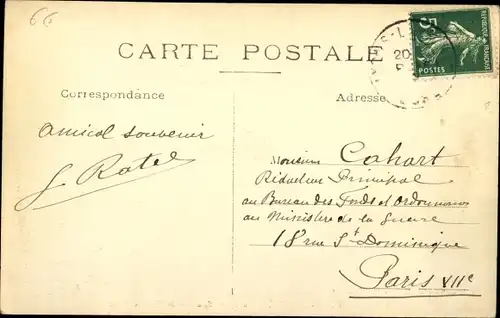 66
CARTE POSTALE
5
POSTES
REPUBLIQUE FRANÇAISE
20
Correspondance
Adresse
Amical souvenir
G Ratel
Monsieur Cahart
Rédacteur Principal
au Bureau des Fonds et Ordonnances
au Ministère de la Guerre
18 rue St Dominique
Paris VIIe